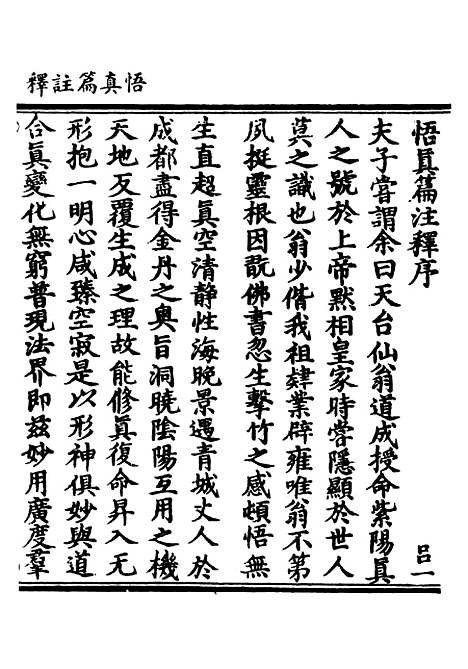 悟真篇註釋
悟眞篇注釋序
呂一
夫子嘗謂余曰天台仙翁道成授命紫陽眞
人之號於上帝默相皇家時嘗隱顯於世人
莫之識也翁少偕我祖肄業辟雍唯翁不第
夙挺靈根因翫佛書忽生擊竹之感頓悟無
生直超眞空清静性海晚景遇青城丈人於
成都盡得金丹之奥旨洞曉陰陽互用之機
天地反覆生成之理故能修眞復命昇入无
形抱一明心咸臻空寂是以形神俱妙與道
合眞變化無窮普現法界即兹妙用廣度羣